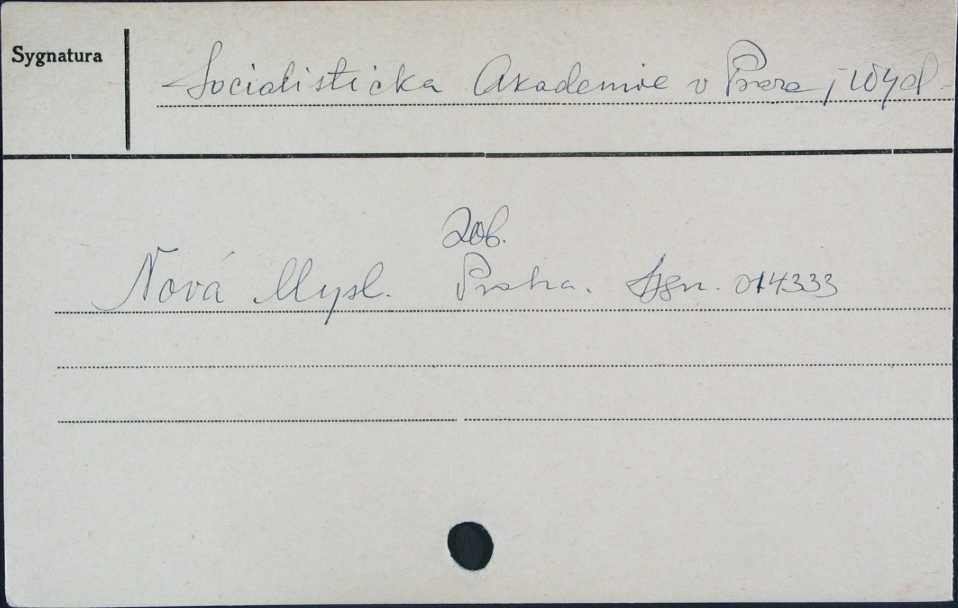 Sygnatura
Socialisticka Akademie v Praze, Wyd.
Zob.
Nová Mysl. Praha. Sygn. 014333